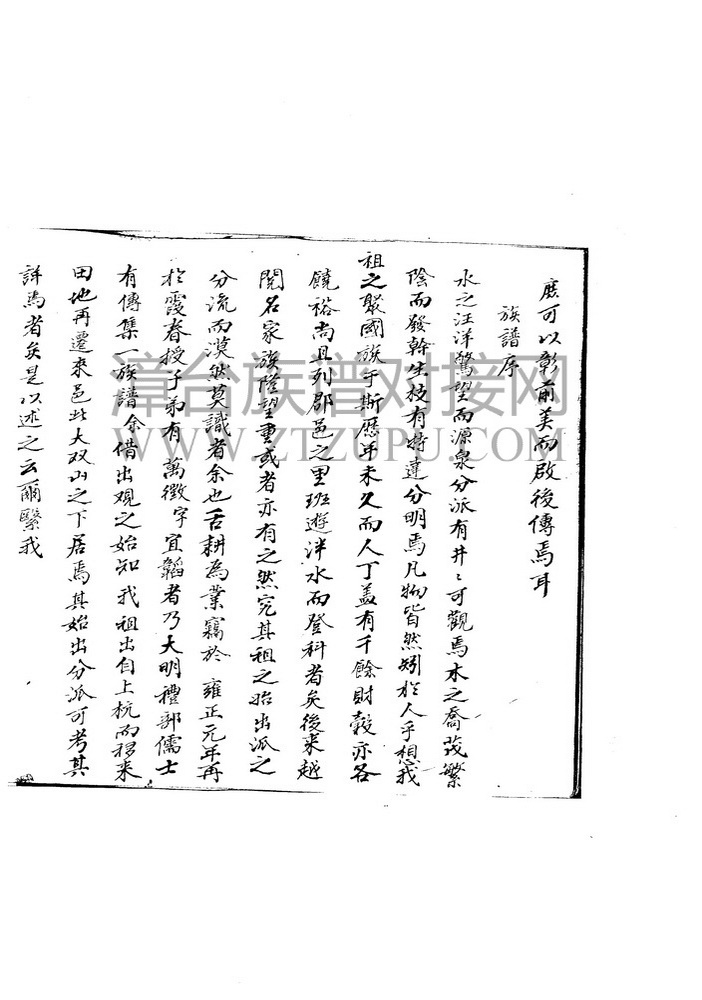 庶可以彰前美而啟後傳焉耳
族譜序
水之汪洋驚望而源泉分派有井〻可觀焉木之喬茂繁
陰而發幹生枝有特達分明焉凡物皆然矧於人乎想我
祖之聚國族于斯歷年未久而人丁盖有千餘財穀亦各
饒裕尚且列郡邑之里班遊泮水而登科者矣後來越
閱名家族隆望重或者亦有之然究其祖之始出派之
分流而漠然莫識者余也舌耕為業竊於 雍正元年再
於霞春授子弟有萬徵字宜韜者乃大明禮部儒士
有傳集一族譜余借出观之始知我祖出自上杭而移来
田地再遷來邑此大双山之下居焉其始出分派可考其
詳焉者矣是以述之云爾繄我
漳台族谱对接网
WWW.ZTZUPU.COM